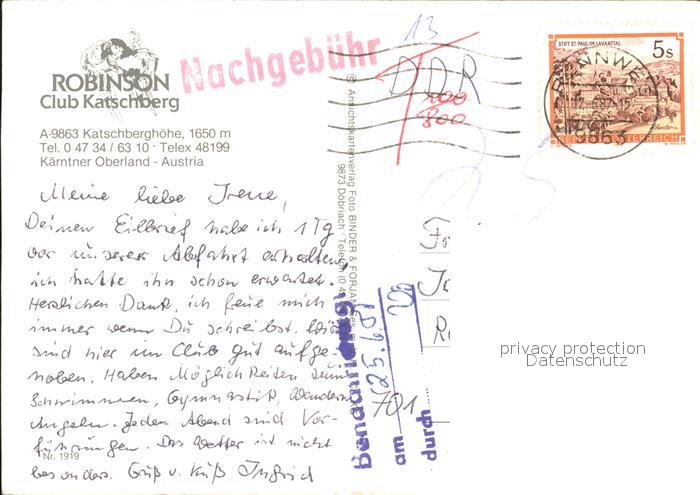 ROBINSON
Club Katschberg
A-9863 Katschberghöhe, 1650 m
Tel. 0 47 34 / 63 10 · Telex 48199
Kärntner Oberland - Austria
Nachgebühr
13
DDR
800
STIFT ST. PAUL IM LAVANTTAL
5s
REPUBLIK ÖSTERREICH
RENNWEG
9863
25
Meine liebe Irene,
Deinen Eilbrief habe ich 1 Tg
vor unserer Abfahrt erhalten,
ich hatte ihn schon erwartet.
Herzlichen Dank, ich freue mich
immer wenn Du schreibst. Wir
sind hier im Club gut aufge-
hoben. Haben Möglichkeiten zum
Schwimmen, Gymnastik, Wandern
Angeln. Jeden Abend sind Vor-
führungen. Das Wetter ist nicht
besonders. Gruß u. Kuß Ingrid
Nr. 1919
© Ansichtskartenverlag Foto BINDER & FORJAN
9873 Döbriach · Telefon
am
durch
701
privacy protection
Datenschutz